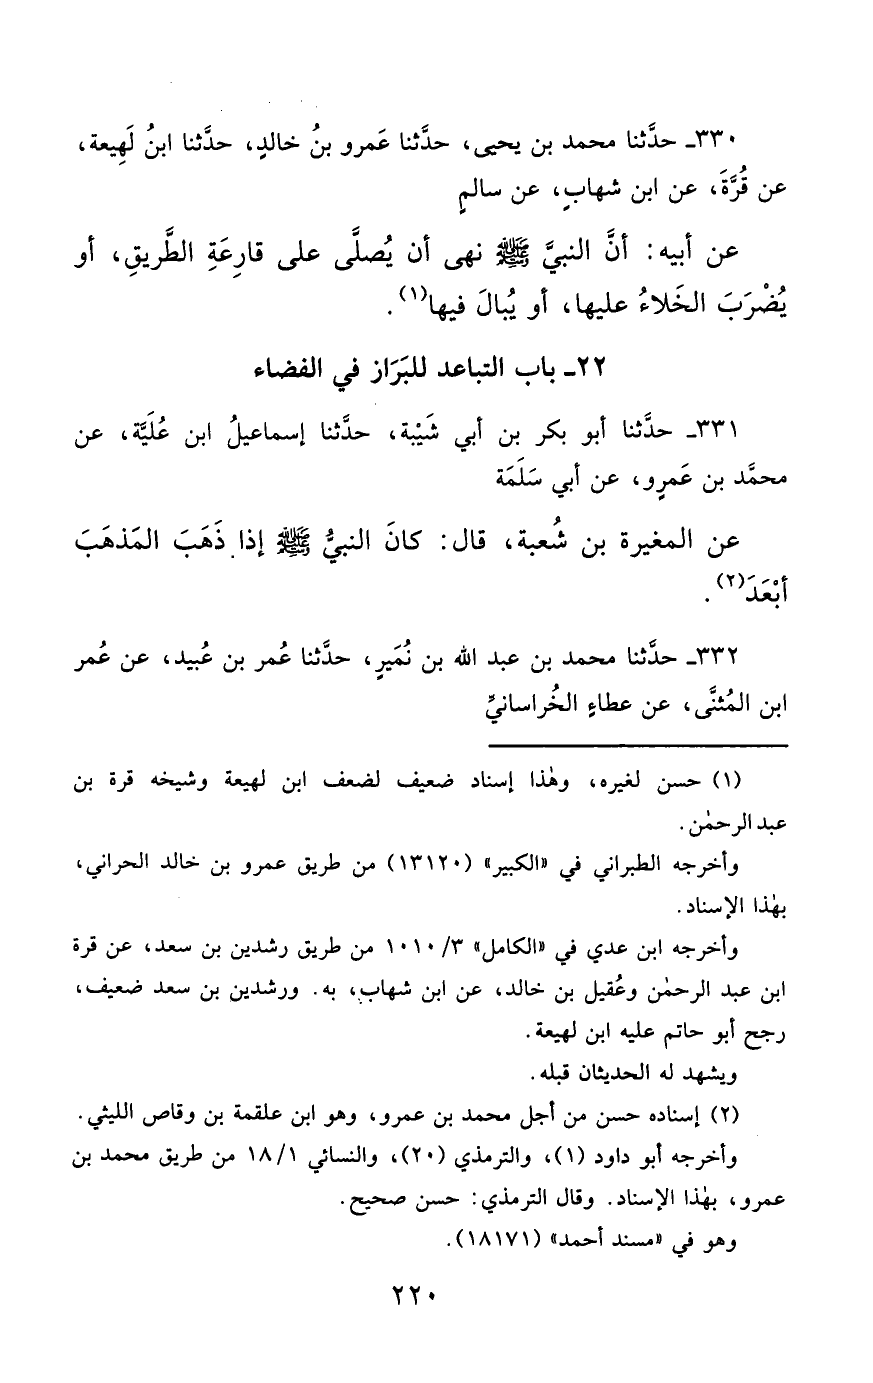 ٣٣٠ـ حدَّثنا محمد بن يحيى، حدَّثنا عَمرو بنُ خالدٍ، حدَّثنا ابنُ لَهِيعة،
عن قُرَّةَ، عن ابن شهابٍ، عن سالمٍ
عن أبيه: أنَّ النبيَّ ﷺ نهى أن يُصلَّى على قارِعَةِ الطَّريقِ، أو
يُضْرَبَ الخَلاءُ عليها، أو يُبالَ فيها(١).
٢٢ـ باب التباعد للبَرَاز في الفضاء
٣٣١ـ حدَّثنا أبو بكر بن أبي شَيْبة، حدَّثنا إسماعيلُ ابن عُلَيَّة، عن
محمَّد بن عَمرٍو، عن أبي سَلَمَة
عن المغيرة بن شُعبة، قال: كانَ النبيُّ ﷺ إذا ذَهَبَ المَذهَبَ
أبْعَدَ(٢).
٣٣٢ـ حدَّثنا محمد بن عبد الله بن نُمَيرٍ، حدَّثنا عُمر بن عُبيد، عن عُمر
ابن المُثنَّى، عن عطاءٍ الخُراسانيِّ
(١) حسن لغيره، وهٰذا إسناد ضعيف لضعف ابن لهيعة وشيخه قرة بن
عبد الرحمٰن.
وأخرجه الطبراني في «الكبير» (١٣١٢٠) من طريق عمرو بن خالد الحراني،
بهٰذا الإسناد.
وأخرجه ابن عدي في «الكامل» ٣/ ١٠١٠ من طريق رشدين بن سعد، عن قرة
ابن عبد الرحمٰن وعُقيل بن خالد، عن ابن شهاب، به. ورشدين بن سعد ضعيف،
رجح أبو حاتم عليه ابن لهيعة.
ويشهد له الحديثان قبله.
(٢) إسناده حسن من أجل محمد بن عمرو، وهو ابن علقمة بن وقاص الليثي.
وأخرجه أبو داود (١)، والترمذي (٢٠)، والنسائي ١٨/١ من طريق محمد بن
عمرو، بهٰذا الإسناد. وقال الترمذي: حسن صحيح.
وهو في «مسند أحمد» (١٨١٧١).
٢٢٠